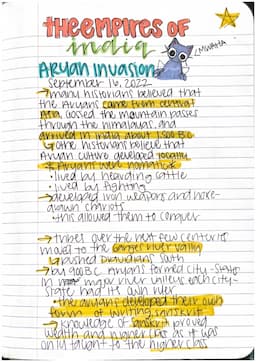 the EMPIRES OF
india
ARYAN INVASION
MWAHA
September 16, 2022
→ many historians believed that
the Aryans came from central
Asia, crossed the mountain passes
through the himalayas, and
arrived in India about 1,500 B.C.
↳ other historians believe that
Aryan culture developed locally
* Aryans were nomatic *
• lived by hearding cattle
• lived by fighting
→ developed iron weapons and horse-
drawn chariots
• this allowed them to conquer
→ tribes over the next few centuries
moved to the Ganges river valley
↳ pushed Dravidians south
→ by 900 B.C. Aryans formed city-states
in major river valleys, each city-
state had its own ruler
• the aryans developed their own
form of writing, sanskrit
→ knowledge of sanskrit proved
wealth and higher class as it was
only taught to the higher class